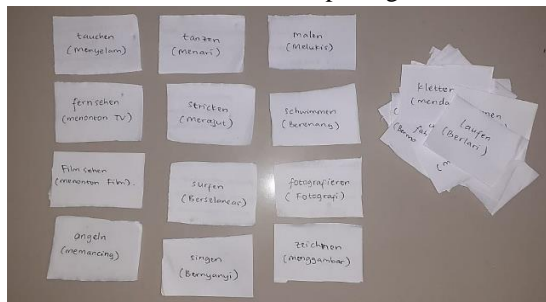 tauchen
(Menyelam)
tanzen
(menari)
malen
(Melukis)
fernsehen
(menonton TV)
stricken
(merajut)
schwimmen
(Berenang)
Film sehen
(menonton film)
surfen
(Berselancar)
fotografieren
(Fotografi)
angeln
(memancing)
singen
(Bernyanyi)
zeichnen
(menggambar)
kletter
(menda
laufen
(Berlari)